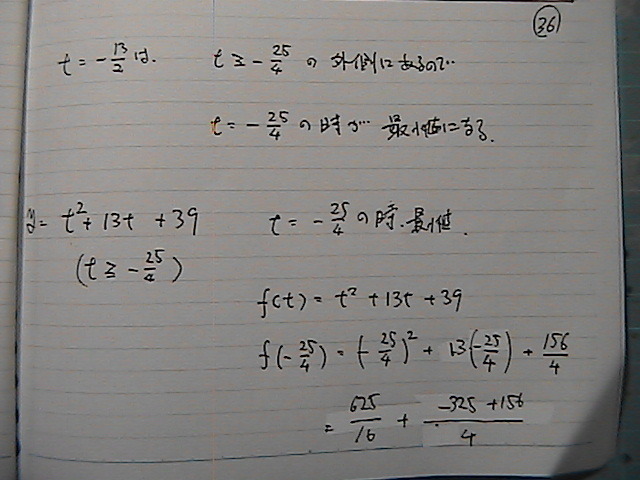 36
t = -13/2 は. t ≧ -25/4 の 外側にあるので…
t = -25/4 の時が… 最小値になる.
y = t² + 13t + 39 t = -25/4 の時. 最小値.
(t ≧ -25/4)
f(t) = t² + 13t + 39
f(-25/4) = (-25/4)² + 13(-25/4) + 156/4
= 625/16 + (-325 + 156)/4